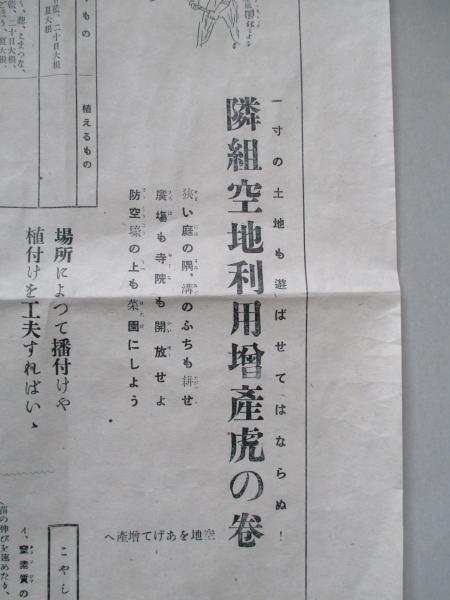 一寸の土地も遊ばせてはならぬ!
隣組空地利用增產虎の巻
空地をあげて增產へ
狹い庭の隅、溝のふちも耕せ
廣場も寺院も開放せよ
防空壕の上も菜園にしよう
植えるもの
二十日大根
夏大根
葱、とまつな、
二十日大根、
夏大根、
場所によつて播付けや
植付けを工夫すればいゝ
こやし
イ、窒素質の
苗の伸びを速めたり、